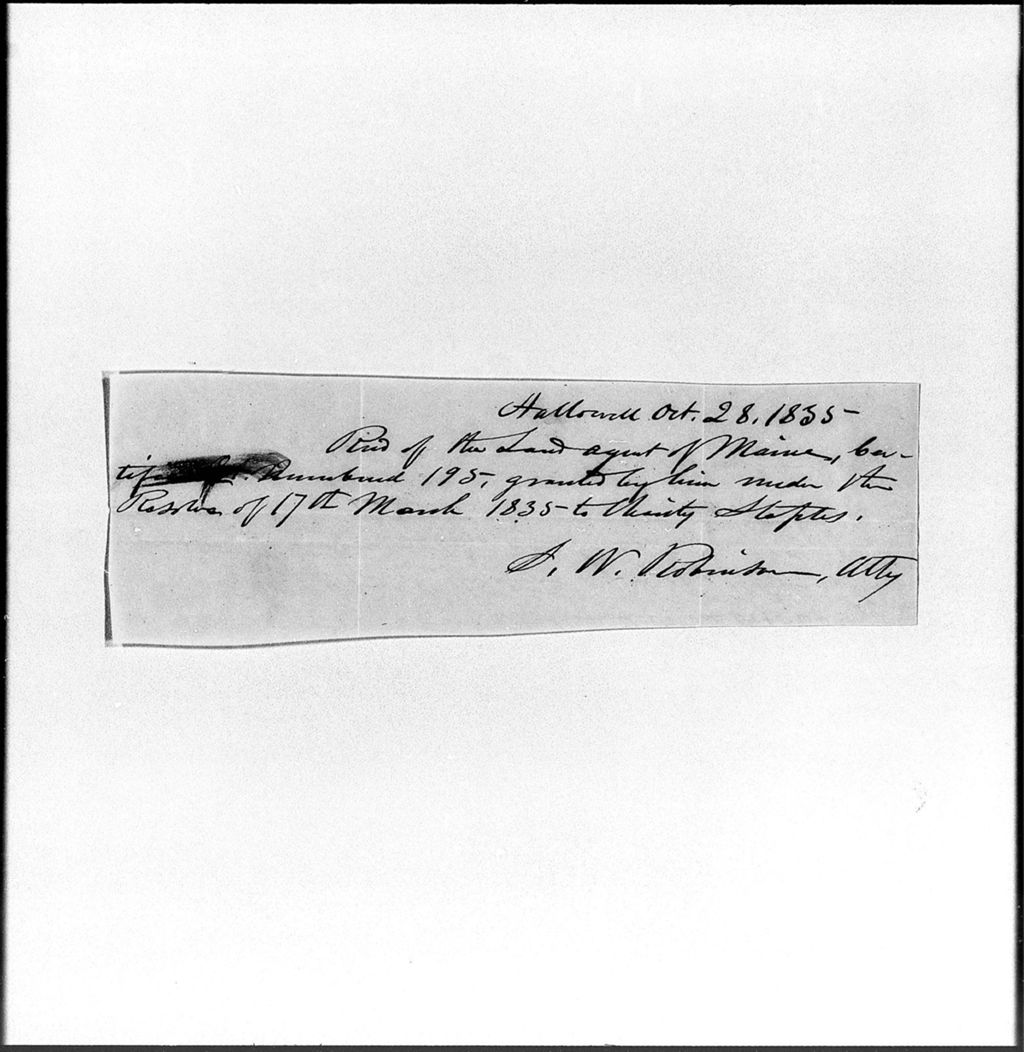 Hallowell Oct. 28. 1835
Recd of the Land agent of Maine, Cer-
tif Numbered 195, granted by him under the
Resolve of 17th March 1835 to Staples.
S. W. Robinson, Atty